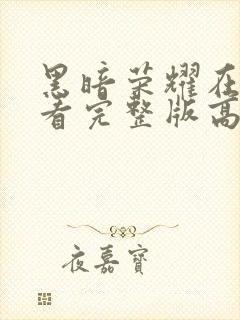 黑暗荣耀在
看完整版高
夜嘉寶